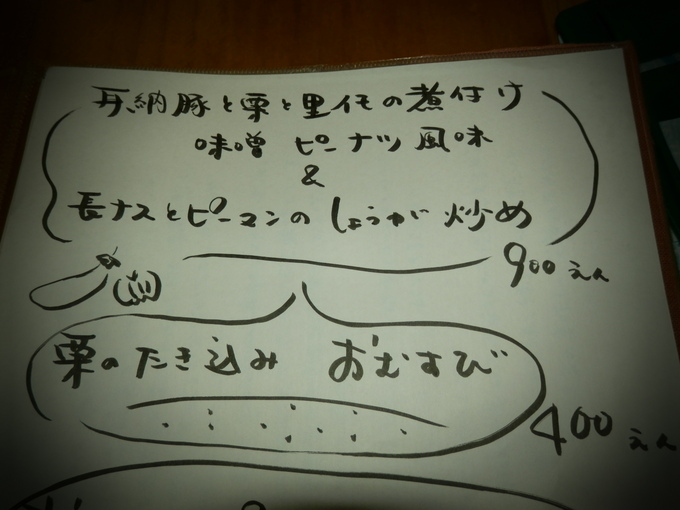 丹納豚と栗と里イモの煮付け
味噌ピーナツ風味
&
長ナスとピーマンのしょうが炒め
900えん
栗のたき込み おむすび
400えん